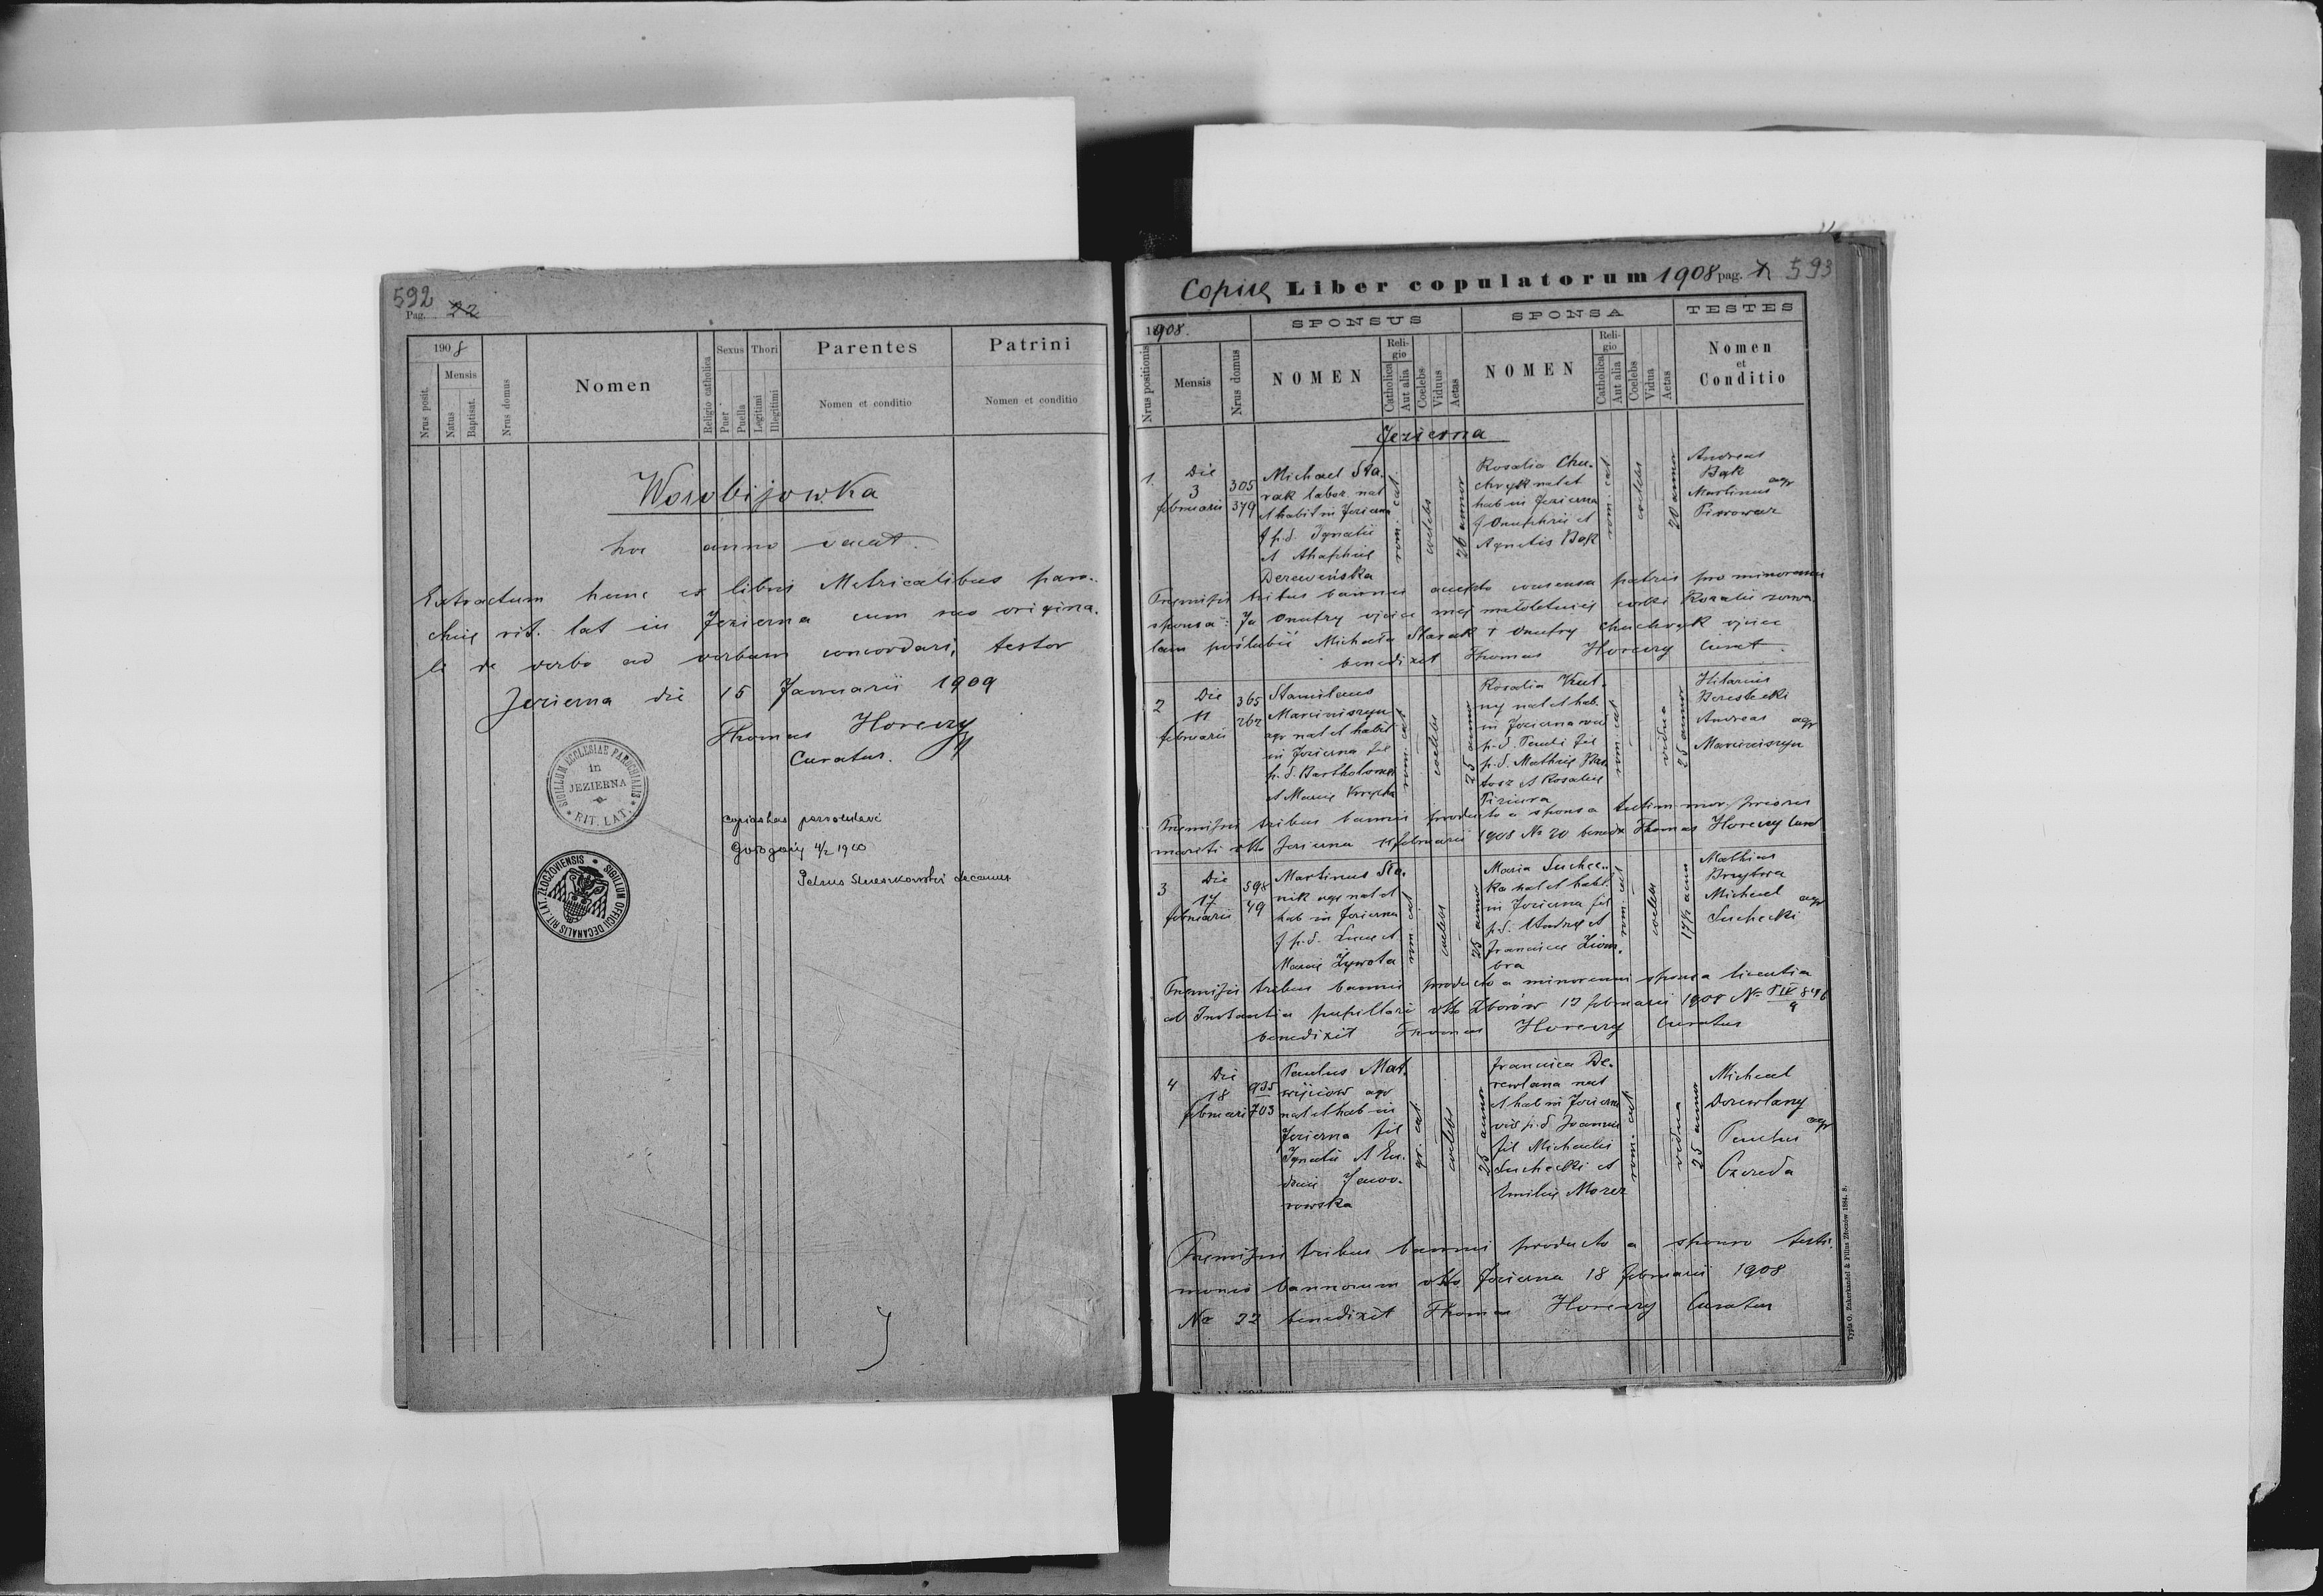 592
Pag. 22
1908
Nrus posit.
Mensis
Natus
Baptisat.
Nrus domus
Nomen
Religio catholica
Sexus
Puer
Puella
Thori
Legitimi
Illegitimi
Parentes
Nomen et conditio
Patrini
Nomen et conditio
Worobijowka
hoc anno vacat.
Extractum hunc ex libris Metricalibus paro-
chię rit. lat in Jezierna cum suo origina-
li de verbo ad verbum concordari, testor
Jezierna die 15 Januarii 1909
Thomas Horeczy
Curatus.
SIGILLUM ECCLESIAE PAROCHIALIS
in
JEZIERNA
RIT. LAT.
copias has
Gołogóry 4/2 1900
Petrus decanus
SIGILLUM OFFICII DECANALIS RIT. LAT. ZŁOCZOVIENSIS
Copię Liber copulatorum 1908 pag. 593
1908.
SPONSUS
SPONSA
TESTES
Nrus positionis
Mensis
Nrus domus
NOMEN
Religio
Catholica
Aut alia
Coelebs
Viduus
Aetas
NOMEN
Religio
Catholica
Aut alia
Coelebs
Vidua
Aetas
Nomen
et
Conditio
Jezierna
1.
Die
3
februarii
305
379
Michael Sta-
rak labor. nat
et habit in Jezierna
f p.d. Ignatii
et Ahaphię
Derewińska
rom. cat.
coelebs
26 annor
Rosalia Chu-
chryk nat et
hab in Jezierna
f Onuphrii et
Agnetis Bąk
rom. cat
coelebs
20 annor
Andreas
Bąk
Martinus agr
Piwowar
Pręmissis tribus bannis accepto consensu patris pro minorenni
sponsa: Ja Onufry ojciec mej małoletniej córki Rozalii zezwa-
lam poślubić Michała Starak † Onufry Chuchryk ojciec
benedixit Thomas Horeczy Curat.
2
Die
11
februarii
365
262
Stanislaus
Marciniszyn
agr nat et habit
in Jezierna fil
p.d. Bartholomei
et Marię
rom. cat
coelebs
25 annor
Rosalia Krut-
ny nat et hab.
in Jezierna vid
p.d. Pauli fil
p.d. Mathię
et Rosalię
Piziura
rom. cat
vidua
25 annor
Hilarius
Beresteckí
Andreas agr
Marciniszyn
Pręmissis tribus bannis producto a sponsa testim mor. prioris
mariti dtto Jezierna 11 februarii 1908 No 20 bened Thomas Horeczy Curat
3
Die
17
februarii
598
49
Martinus Sta-
nik agr nat et
hab in Jezierna
f p.d. Lucę et
Marię Żywota
rom. cat
coelebs
25 annor
Maria Suchec-
ka nat et habt.
in Jezierna fil
p.d. Andreę et
Franciscę Ziom-
bra
rom. cat
coelebs
17½ annor
Mathias
Brytwa
Michael agr
Suchecki
Pręmissis tribus bannis producto a minorenni sponsa licentia
ab Instantia pupillari dtto Zborów 12 februarii 1908 No P IV 848
9
benedixit Thomas Horeczy Curatus
4
Die
18
februarii
935
703
Paulus Mat-
wijców agr
nat et hab in
Jezierna fil
Ignatii et Eu-
docię Jawo-
rowska
gr. cat.
coelebs
25 annor
Francisca De-
rewlana nat
et hab in Jezierna
vid p.d Joannis
fil Michaelis
Suchecki et
Emilię Mazer
rom. cat
vidua
25 annor
Michael
Derewlany
agr
Paulus
Czereda
Pręmissis tribus bannis producto a sponso testi-
monio bannorum dtto Jezierna 18 februarii 1908
No 22 benedixit Thomas Horeczy Curatus
Typis O. Zukerkandel & Filius Złoczów 1884. 8.